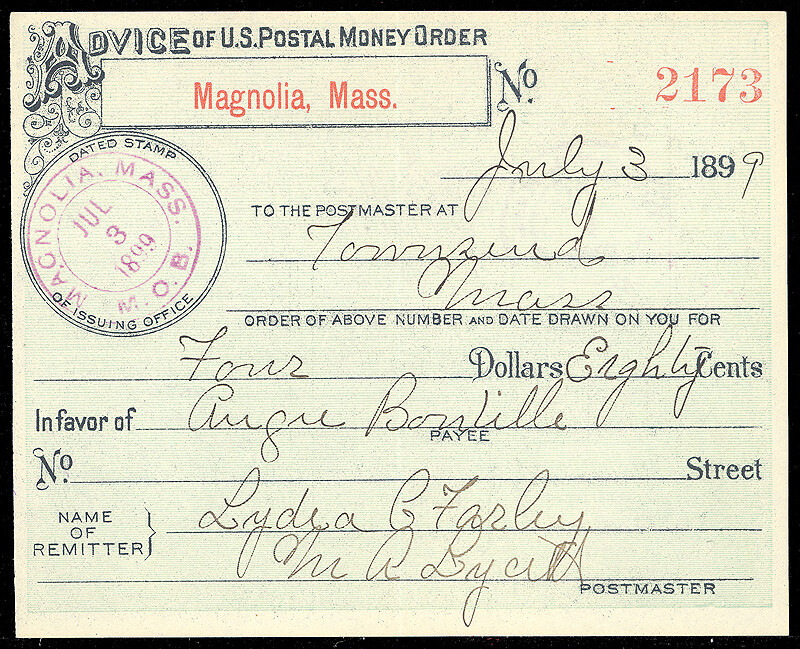 ADVICE OF U.S. POSTAL MONEY ORDER
Magnolia, Mass.
No. 2173
DATED STAMP
MAGNOLIA, MASS.
JUL
3
1899
M. O. B.
OF ISSUING OFFICE
July 3 1899
TO THE POSTMASTER AT
Townsend
Mass
ORDER OF ABOVE NUMBER AND DATE DRAWN ON YOU FOR
Four Dollars Eighty Cents
In favor of Angie
PAYEE
No. Street
NAME OF REMITTER } Lydia C Farley
M A
POSTMASTER